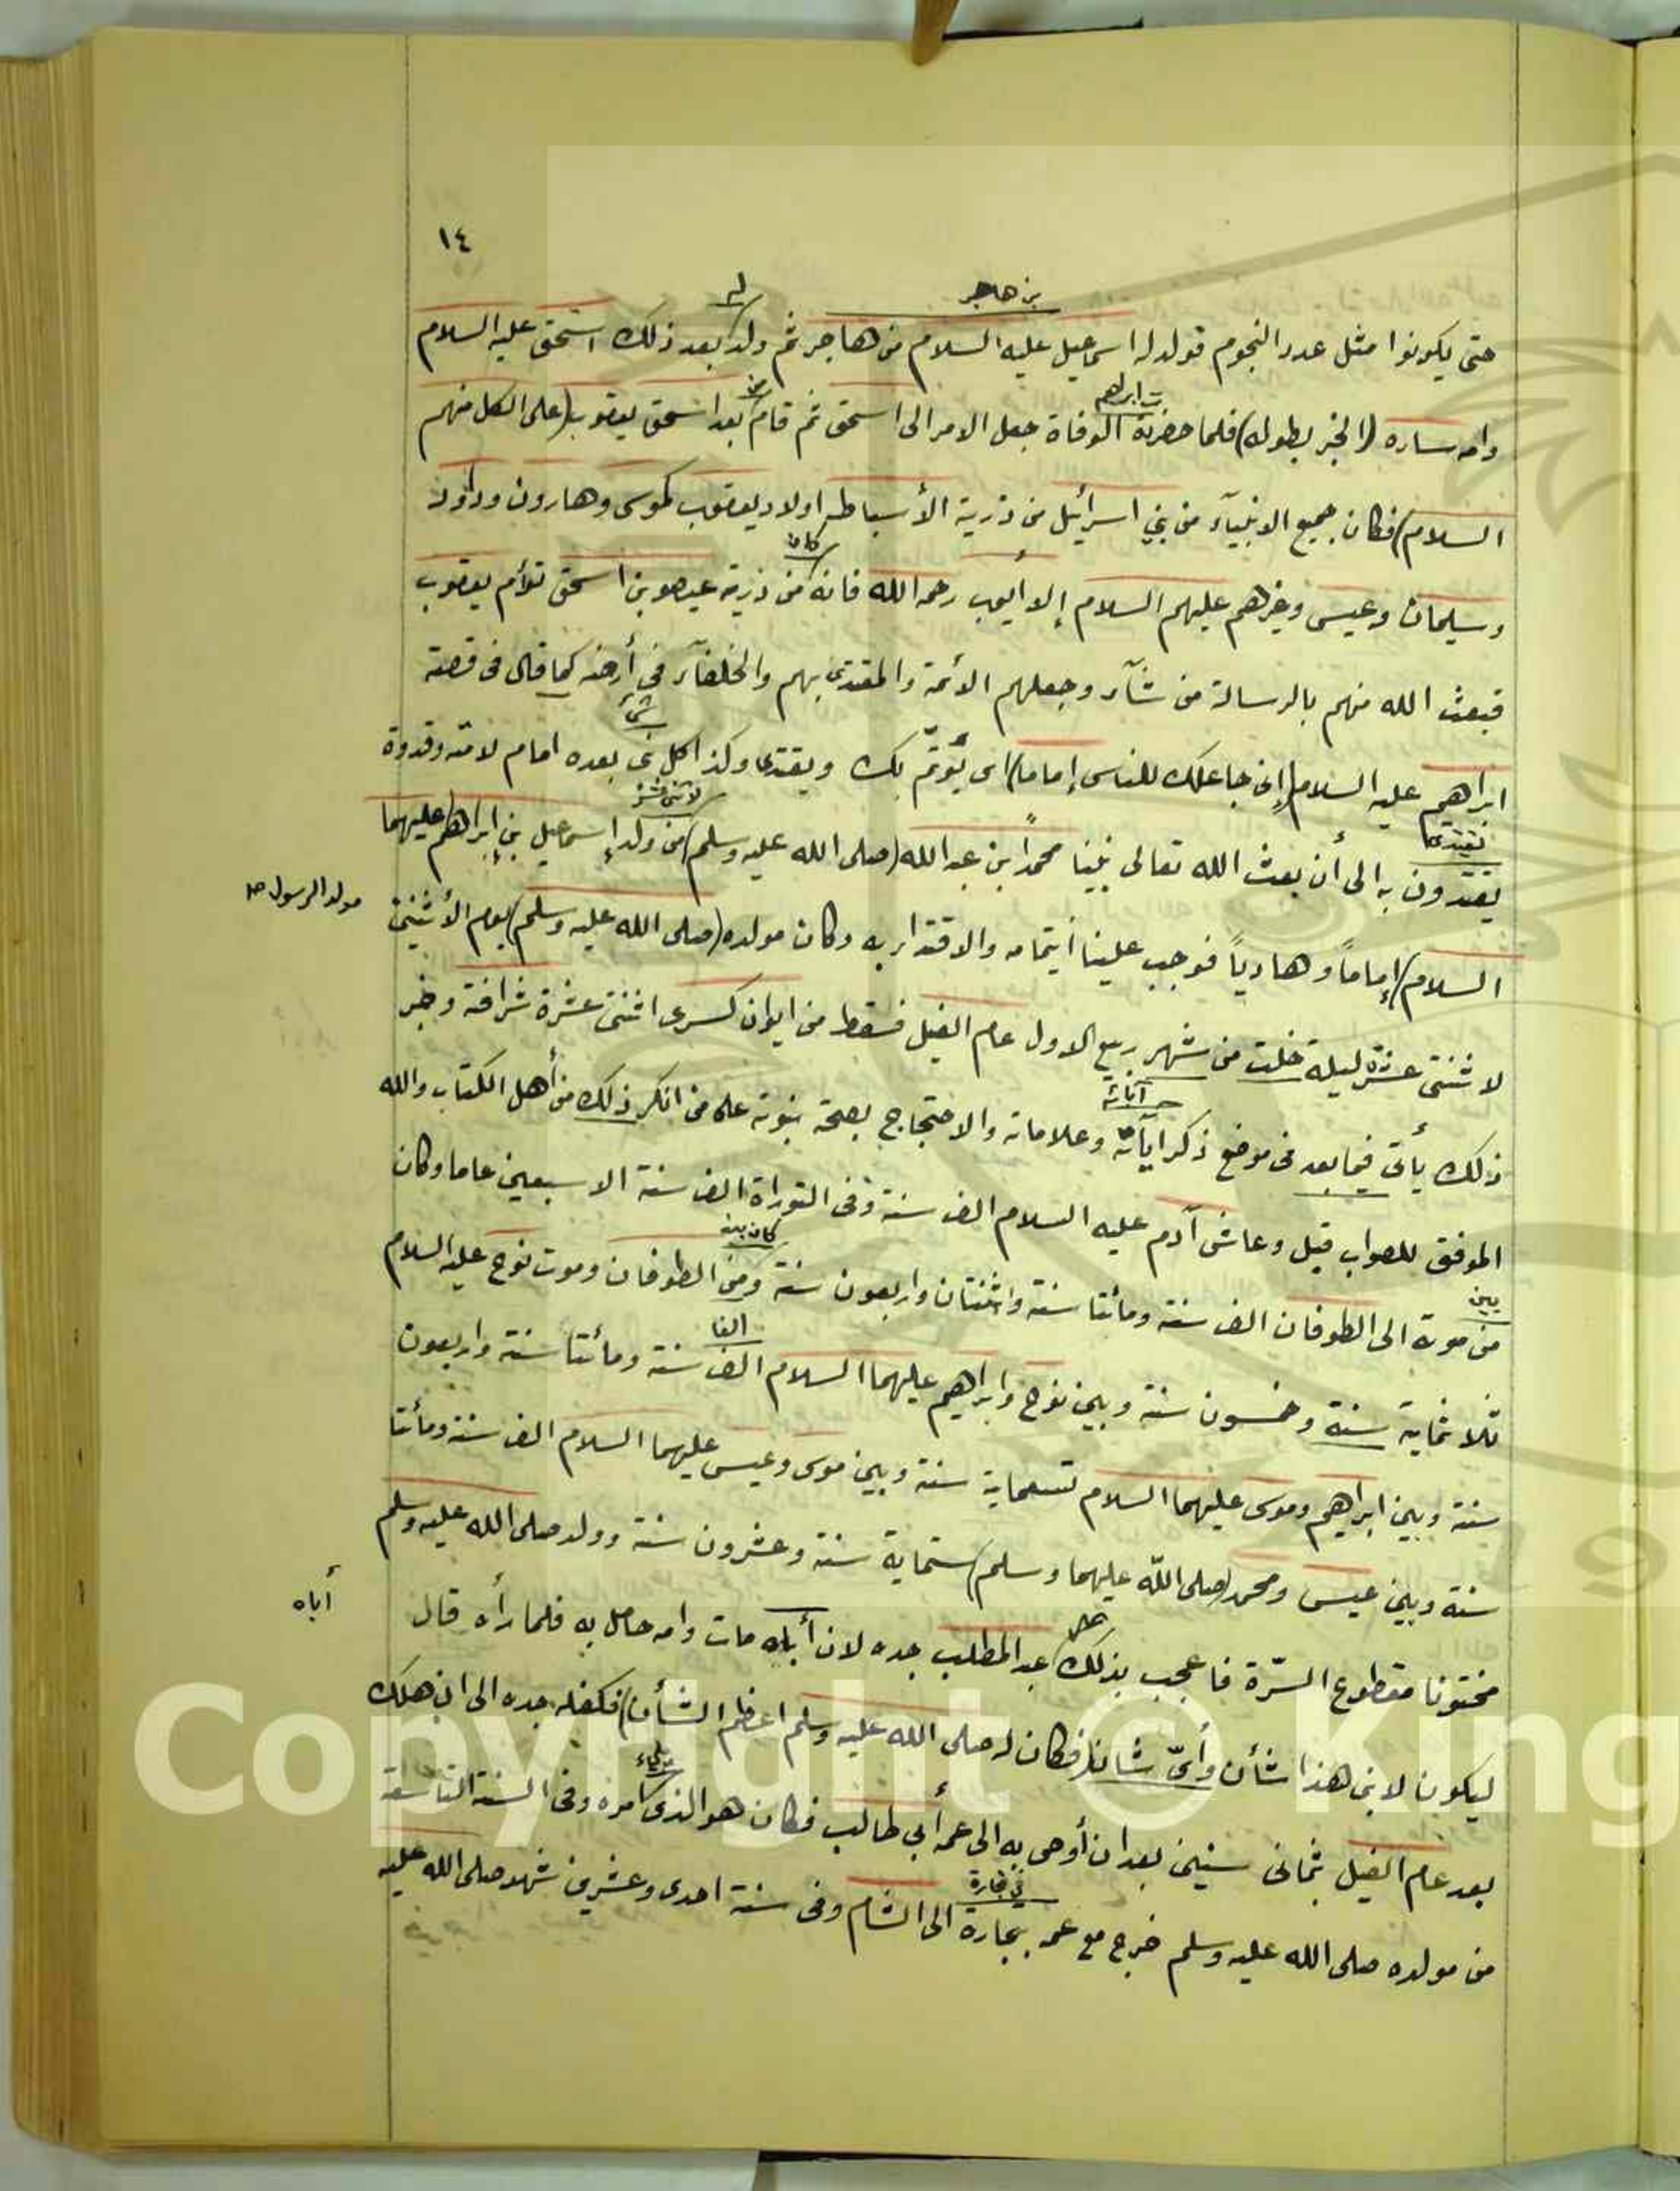 ١٤
بن هاجر
له
حتى يكونوا مثل عدد النجوم فولد له اسمعيل عليه السلام من هاجر ثم ولد بعد ذلك اسحق عليه السلام
ت ابراهيم
وامه ساره (الخبر بطوله) فلما حضرته الوفاة جعل الامر الى اسحق ثم قام بعد اسحق يعقوب (على الكل منهم
السلام) فكان جميع الانبيآء من بني اسرائيل من ذرية الأسباط اولاد يعقوب كموسى وهارون وداود
كان
وسليمان وعيسى وغيرهم عليهم السلام إلا أيوب رحمه الله فانه من ذرية عيصو بن اسحق توأم يعقوب
فبعث الله منهم بالرسالة من شآء وجعلهم الأئمة والمقتدى بهم والخلفآء في أرضه كما قال في قصة
ابراهيم عليه السلام (إني جاعلك للناس إماما) اى يؤتمّ بك ويقتدى وكذا كل نبى بعده امام لامته وقدوة
يقتدى
يقتدون به الى أن بعث الله تعالى نبينا محمداً ابن عبد الله (صلى الله عليه وسلم) من ولد إسمعيل بن إبراهيم عليهما
مولد الرسول ص
السلام) إماماً وهادياً فوجب علينا ايتمامه والاقتداء به وكان مولده (صلى الله عليه وسلم) يوم الأثنين
لاثنتى عشرة ليلة خلت من شهر ربيع الاول عام الفيل فسقط من ايوان كسرى اثنتى عشرة شرافة وخبر
آياته
ذلك يأتى فيما بعد فى موضع ذكر اياته وعلاماته والاحتجاج بصحة نبوته على من انكر ذلك من أهل الكتاب والله
الموفق للصواب قيل وعاش آدم عليه السلام الف سنة وفى التوراة الف سنة الا سبعين عاما وكان
بين
كان بين
من موته الى الطوفان الف سنة ومأتنا سنة واثنتان واربعون سنة ومن الطوفان وموت نوح عليه السلام
الفا
ثلاثماية سنة وخمسون سنة وبين نوح وابراهيم عليهما السلام الف سنة ومأتنا سنة واربعون
سنة وبين ابراهيم وموسى عليهما السلام تسعماية سنة وبين موسى وعيسى عليهما السلام الف سنة ومأتنا
سنة وبين عيسى ومحمد (صلى الله عليهما وسلم) ستماية سنة وعشرون سنة وولد صلى الله عليه وسلم
أباه
مختونا مقطوع السرّة فاعجب بذلك عبد المطلب جده لان أباه مات وامه حامل به فلما رأه قال
ليكونن لابنى هذا شأن وأىّ شان (فكان له صلى الله عليه وسلم اعظم الشأن) فكفله جده الى ان هلك
بعد عام الفيل بثمانى سنين بعد ان أوصى به الى عمه أبي طالب فكان هو الذى امره وفى السنة التاسعة
في تجارة
من مولده صلى الله عليه وسلم خرج مع عمه بتجارة الى الشام وفى سنة احدى وعشرين شهد صلى الله عليه
Copyright © King